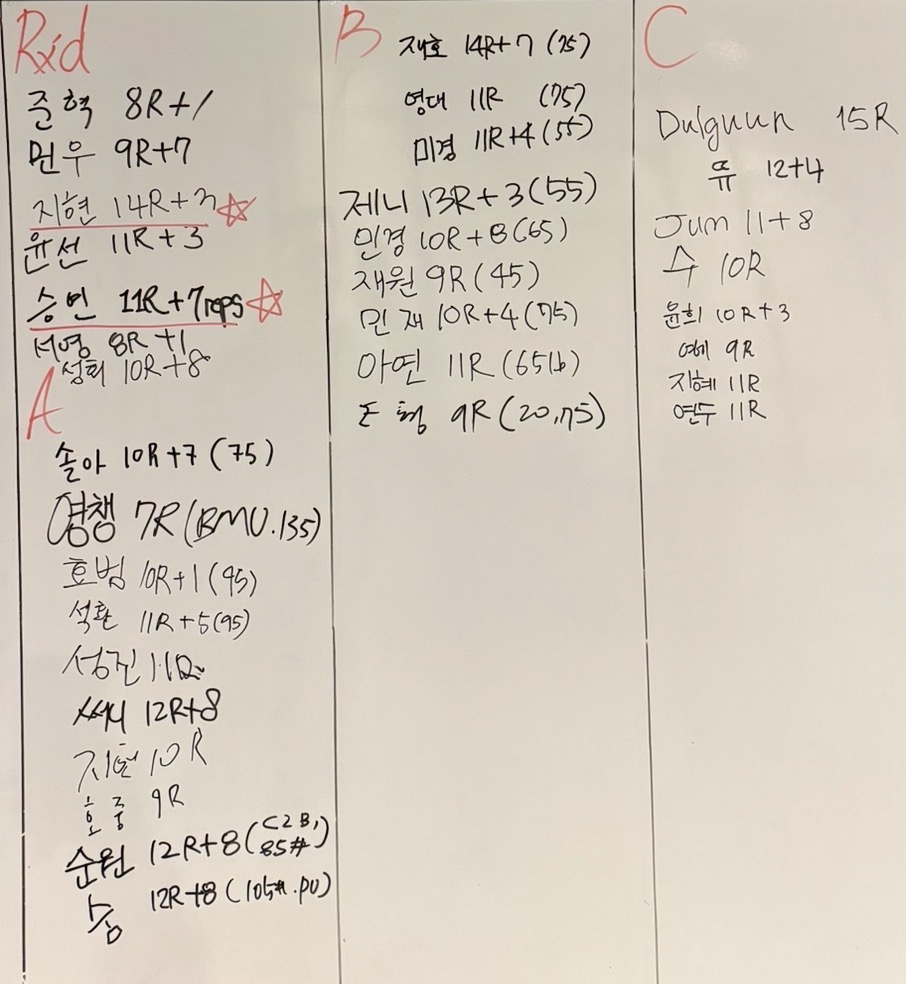 Rxd
준혁 8R+1
민우 9R+7
지현 14R+3 ☆
윤선 11R+3
승민 11R+7reps ☆
서영 8R+1
성희 10R+8
A
솔아 10R+7 (75)
영챙 7R (BMU.135)
효범 10R+1 (95)
석환 11R+5 (95)
성진 11R
써니 12R+8
지현 10R
효중 9R
순원 12R+8 (C2B, 85#)
숨 12R+8 (105#.PU)
B
재호 14R+7 (75)
영대 11R (75)
미경 11R+4 (55)
제니 13R+3 (55)
민경 10R+8 (65)
재원 9R (45)
민재 10R+4 (75)
아연 11R (65lb)
도형 9R (20,75)
C
Dulguun 15R
뜌 12+4
Jum 11+8
수 10R
윤희 10R+3
예 9R
지혜 11R
연두 11R